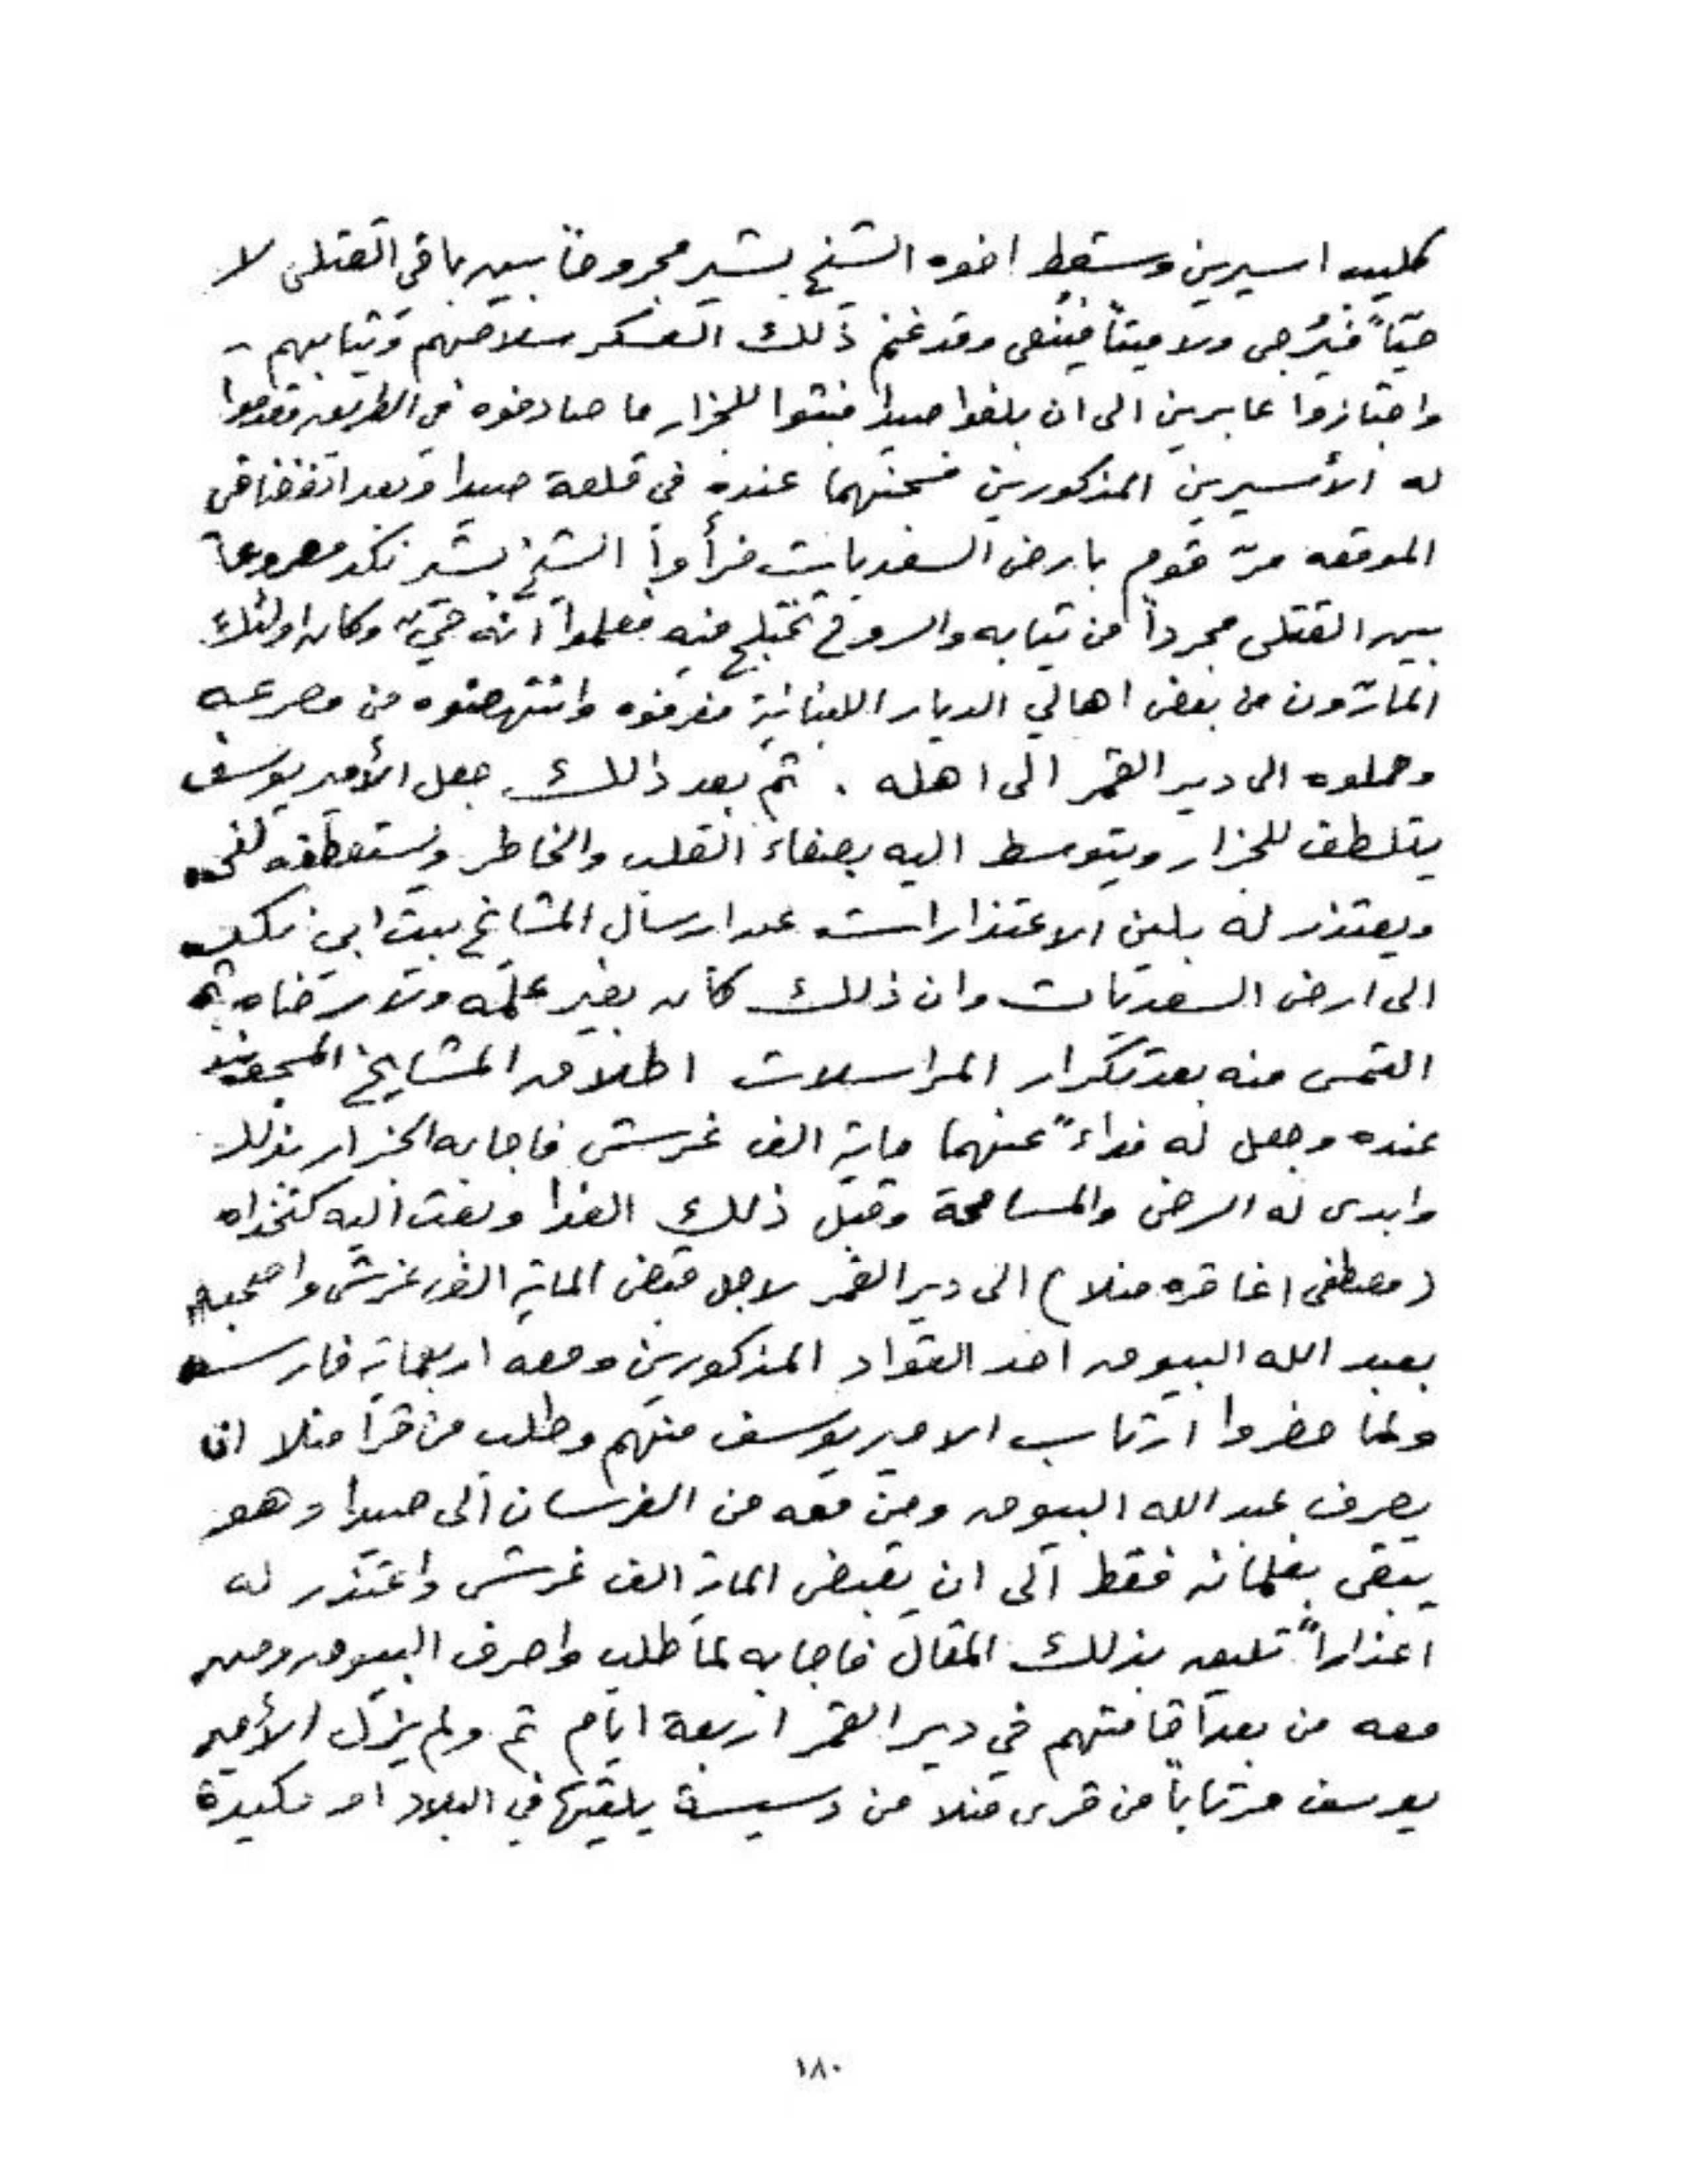 كليب اسيرين وسقط اخوه الشيخ بشير مجروحاً بين باقي القتلى لا
حيّاً فيُرجى ولا ميتاً فيُنعى وقد غنم ذلك العسكر سلاحهم وثيابهم -
واجتازوا عابرين الى ان بلغوا صيدا فبثوا للجزار ما صادفوه في الطريق فقدموا
له الأسيرين المذكورين فسجنهما عنده في قلعة صيدا وبعد انفضاض
الموقعه مرّ قوم بارض السعديات فرأوا الشيخ بشير نكد مصروعاً
بين القتلى مجرداً من ثيابه والروح تختلج فيه فعلموا انّه حيّ وكان اولئك
المارّون من بعض اهالي الديار اللبنانية فعرفوه وانتهضوه من مصرعه
وحملوه الى دير القمر الى اهله . ثم بعد ذلك جعل الأمير يوسف
يتلطف للجزار ويتوسط اليه بصفاء القلب والخاطر ويستعطفه
ويعتذر له بلين الاعتذارات عن ارسال المشايخ بيت ابي نكد
الى ارض السعديات وان ذلك كان بغير علمه ولا رضاه ثم
التمس منه بعد تكرار المراسلات اطلاق المشايخ المسجونين
عنده وجعل له فداءً عنهما ماية الف غرش فاجابه الجزار بذلك
وابدى له الرضى والمسامحة وقبل ذلك الفدا وبعث اليه كتخداه
(مصطفى اغا قره منلا) الى دير القمر لاجل قبض الماية الف غرش واصحبه
بعبد الله البيوق احد القواد المذكورين ومعه اربعماية فارس
ولما حضروا ارتاب الامير يوسف منهم وطلب من قرا منلا ان
يصرف عبد الله البيوق ومن معه من الفرسان الى صيدا وهو
يبقى بغلمانه فقط الى ان يقبض الماية الف غرش واعتذر له
اعذاراً تليق بذلك المقال فاجابه لما طلب واصرف البيوق ومن
معه من بعد اقامتهم في دير القمر اربعة ايّام ثم ولم يزل الأمير
يوسف مرتاباً من قرى منلا من دسيسة يلقيها في البلاد او مكيدة
١٨٠